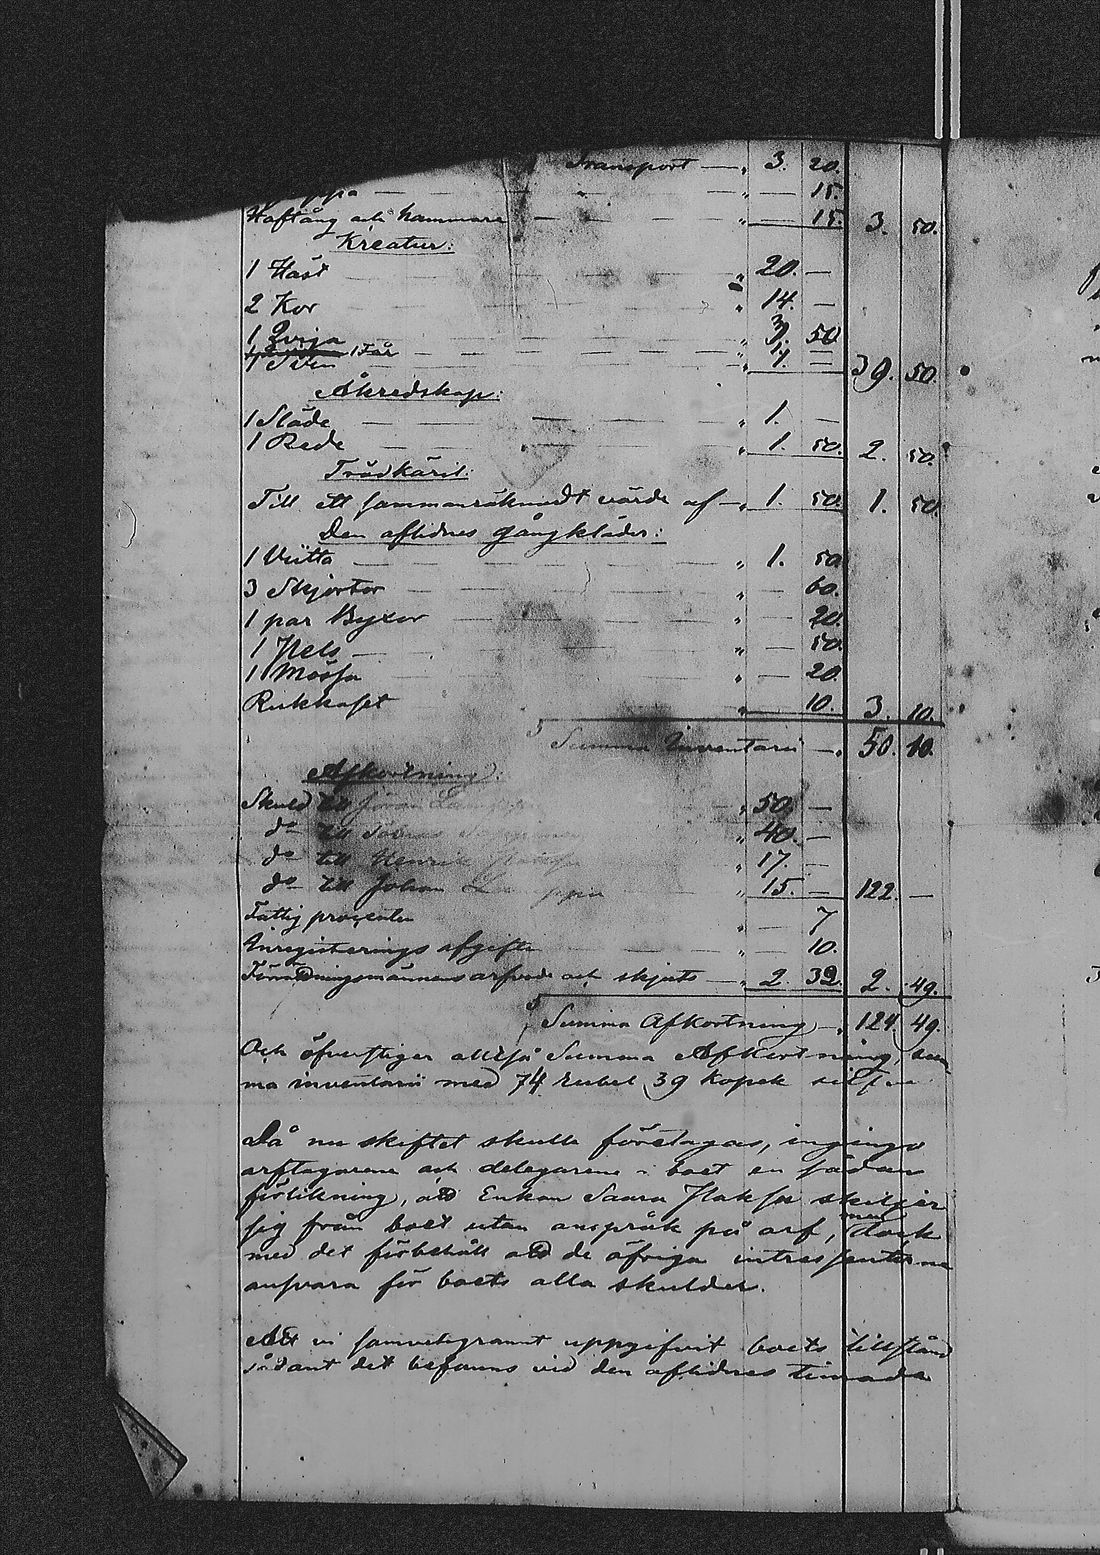 Transport — „ 3. 20.
— „ — 15.
Hoftång och hammare — „ — 15. 3. 50.
Kreatur:
1 Häst — „ 20. —
2 Kor — „ 14. —
1 Qviga — „ 3. 50
1 Får — „ 1. —
39. 50.
Åkredskap:
1 Släde — „ 1. —
1 Rede — „ 1. 50. 2. 50.
Trädkäril:
Till ett sammanräknadt värde af — „ 1. 50. 1. 50.
Den aflidnes gångkläder:
1 — „ 1. 50
3 Skjortor — „ — 60.
1 par Byxor — „ — 20.
1 Pels — „ — 50.
1 Mössa — „ — 20.
Rukkaset „ — 10. 3. 10.
Summa Inventarii — „ 50. 10.
Afkortning:
Skuld till Jöran „ 50. —
do till „ 40. —
do till Henrik „ 17. —
do till Johan „ 15. — 122. —
Fattig procenten „ — 7
Inregisterings afgiften „ — 10.
och skjuts — „ 2. 32. 2. 49.
Summa Afkortning — „ 124. 49.
Och öfverstiger alltså Summa Afkortning, Sum
ma inventarii med 74 rubel 39 kopek silfver
Då nu skiftet skulle företagas, ingingo
arftagarene och delegarene i boet en sådan
förlikning, att Enkan Saara skiljer
sig från boet utan anspråk på arf, men dock
med det förbehåll att de öfriga intressenterne
ansvara för boets alla skulder.
Att vi samvetsgrannt uppgifvit boets tillstånd
sådant det befanns vid den aflidnes timade